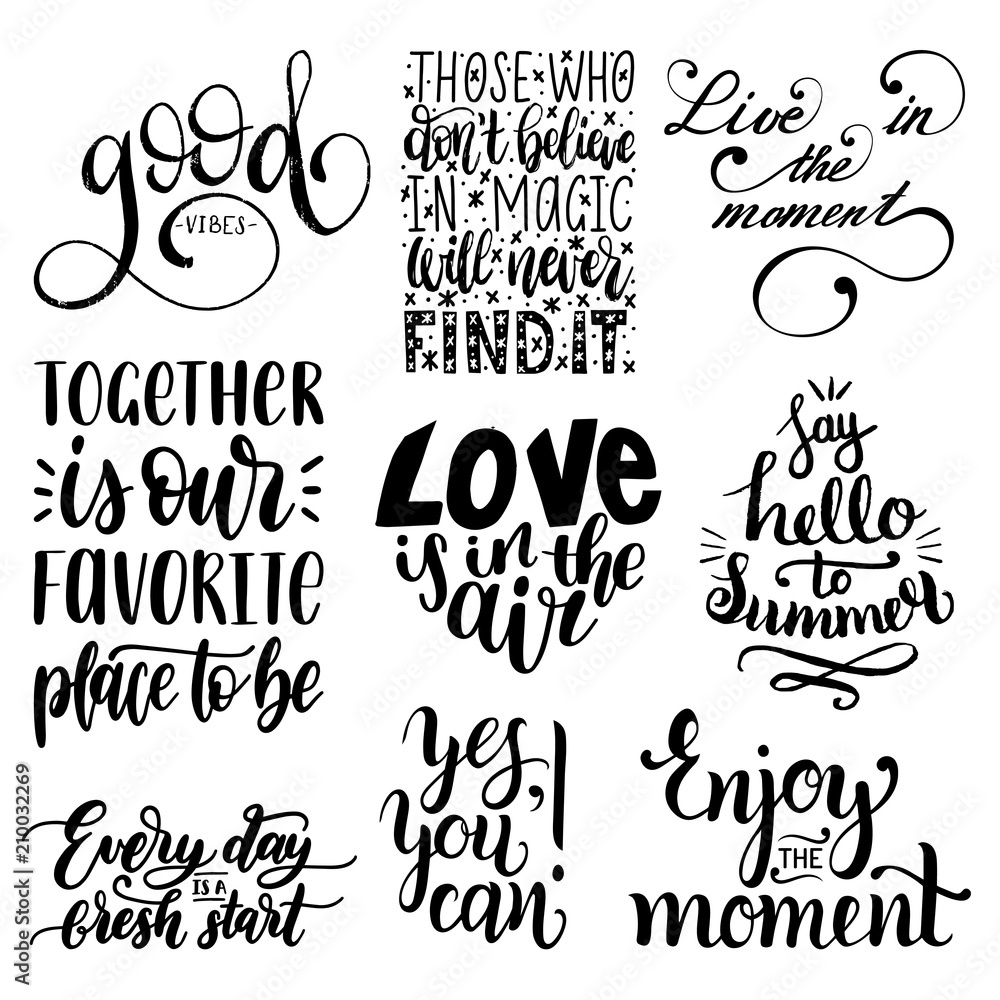 good
-VIBES-
THOSE WHO
don't believe
IN MAGIC
will never
FIND IT
Live in
the
moment
TOGETHER
is our
FAVORITE
place to be
LOVE
is in the
air
Say
hello
to
Summer
Every day
IS A
fresh start
Yes,
you
can!
Enjoy
THE
moment
Adobe Stock | #210032269